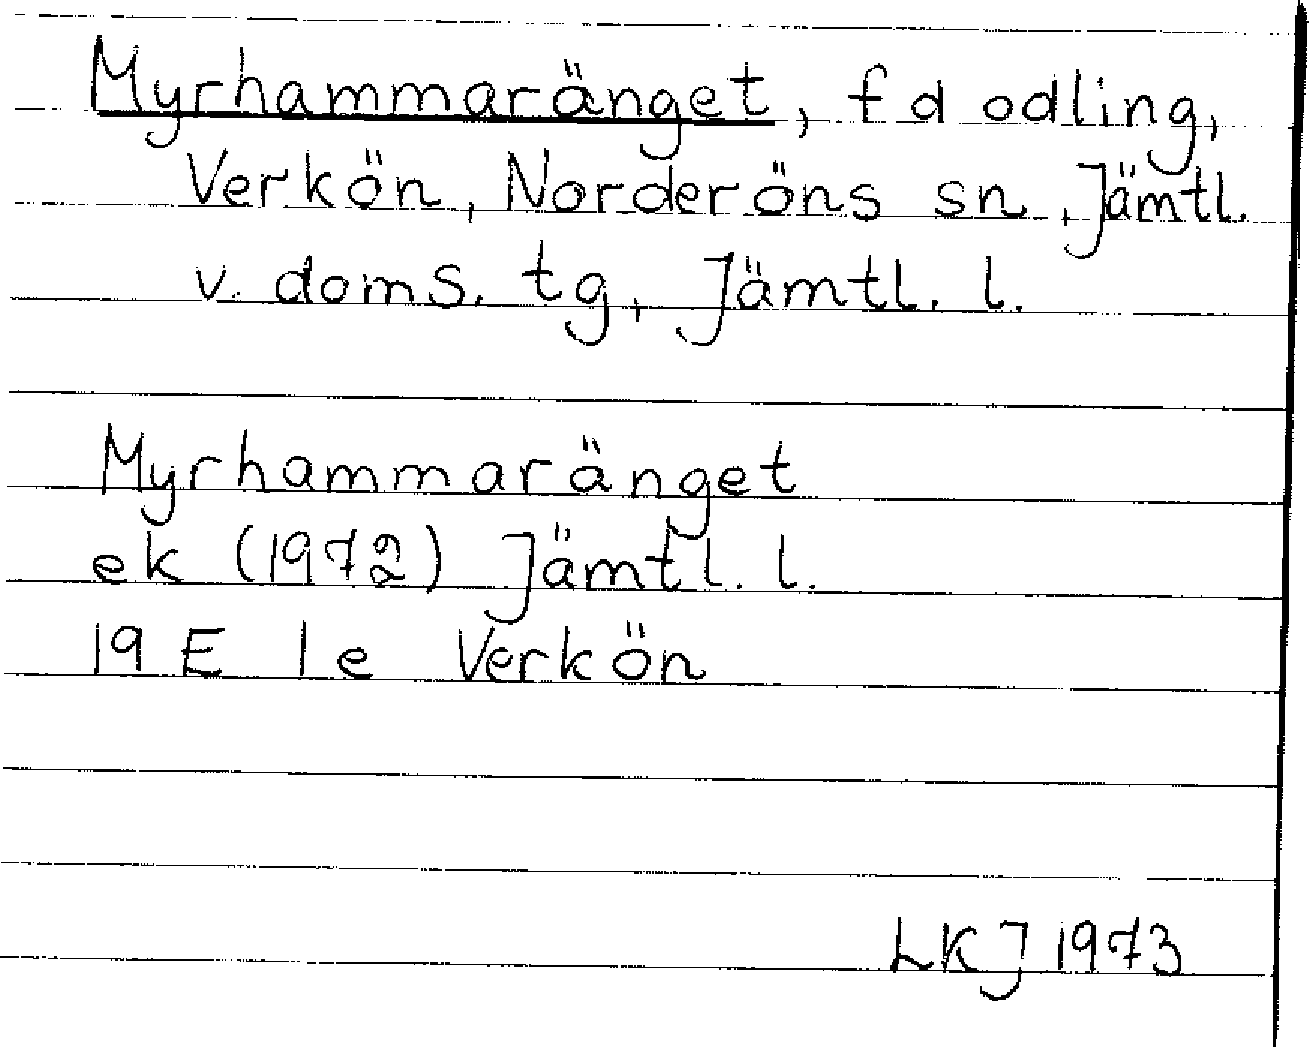 Myrhammaränget, fd odling,
Verkön, Norderöns sn, Jämtl.
v. doms. tg, Jämtl. l.
Myrhammaränget
ek (1972) Jämtl. l.
19 E 1 e Verkön
LKJ 1973